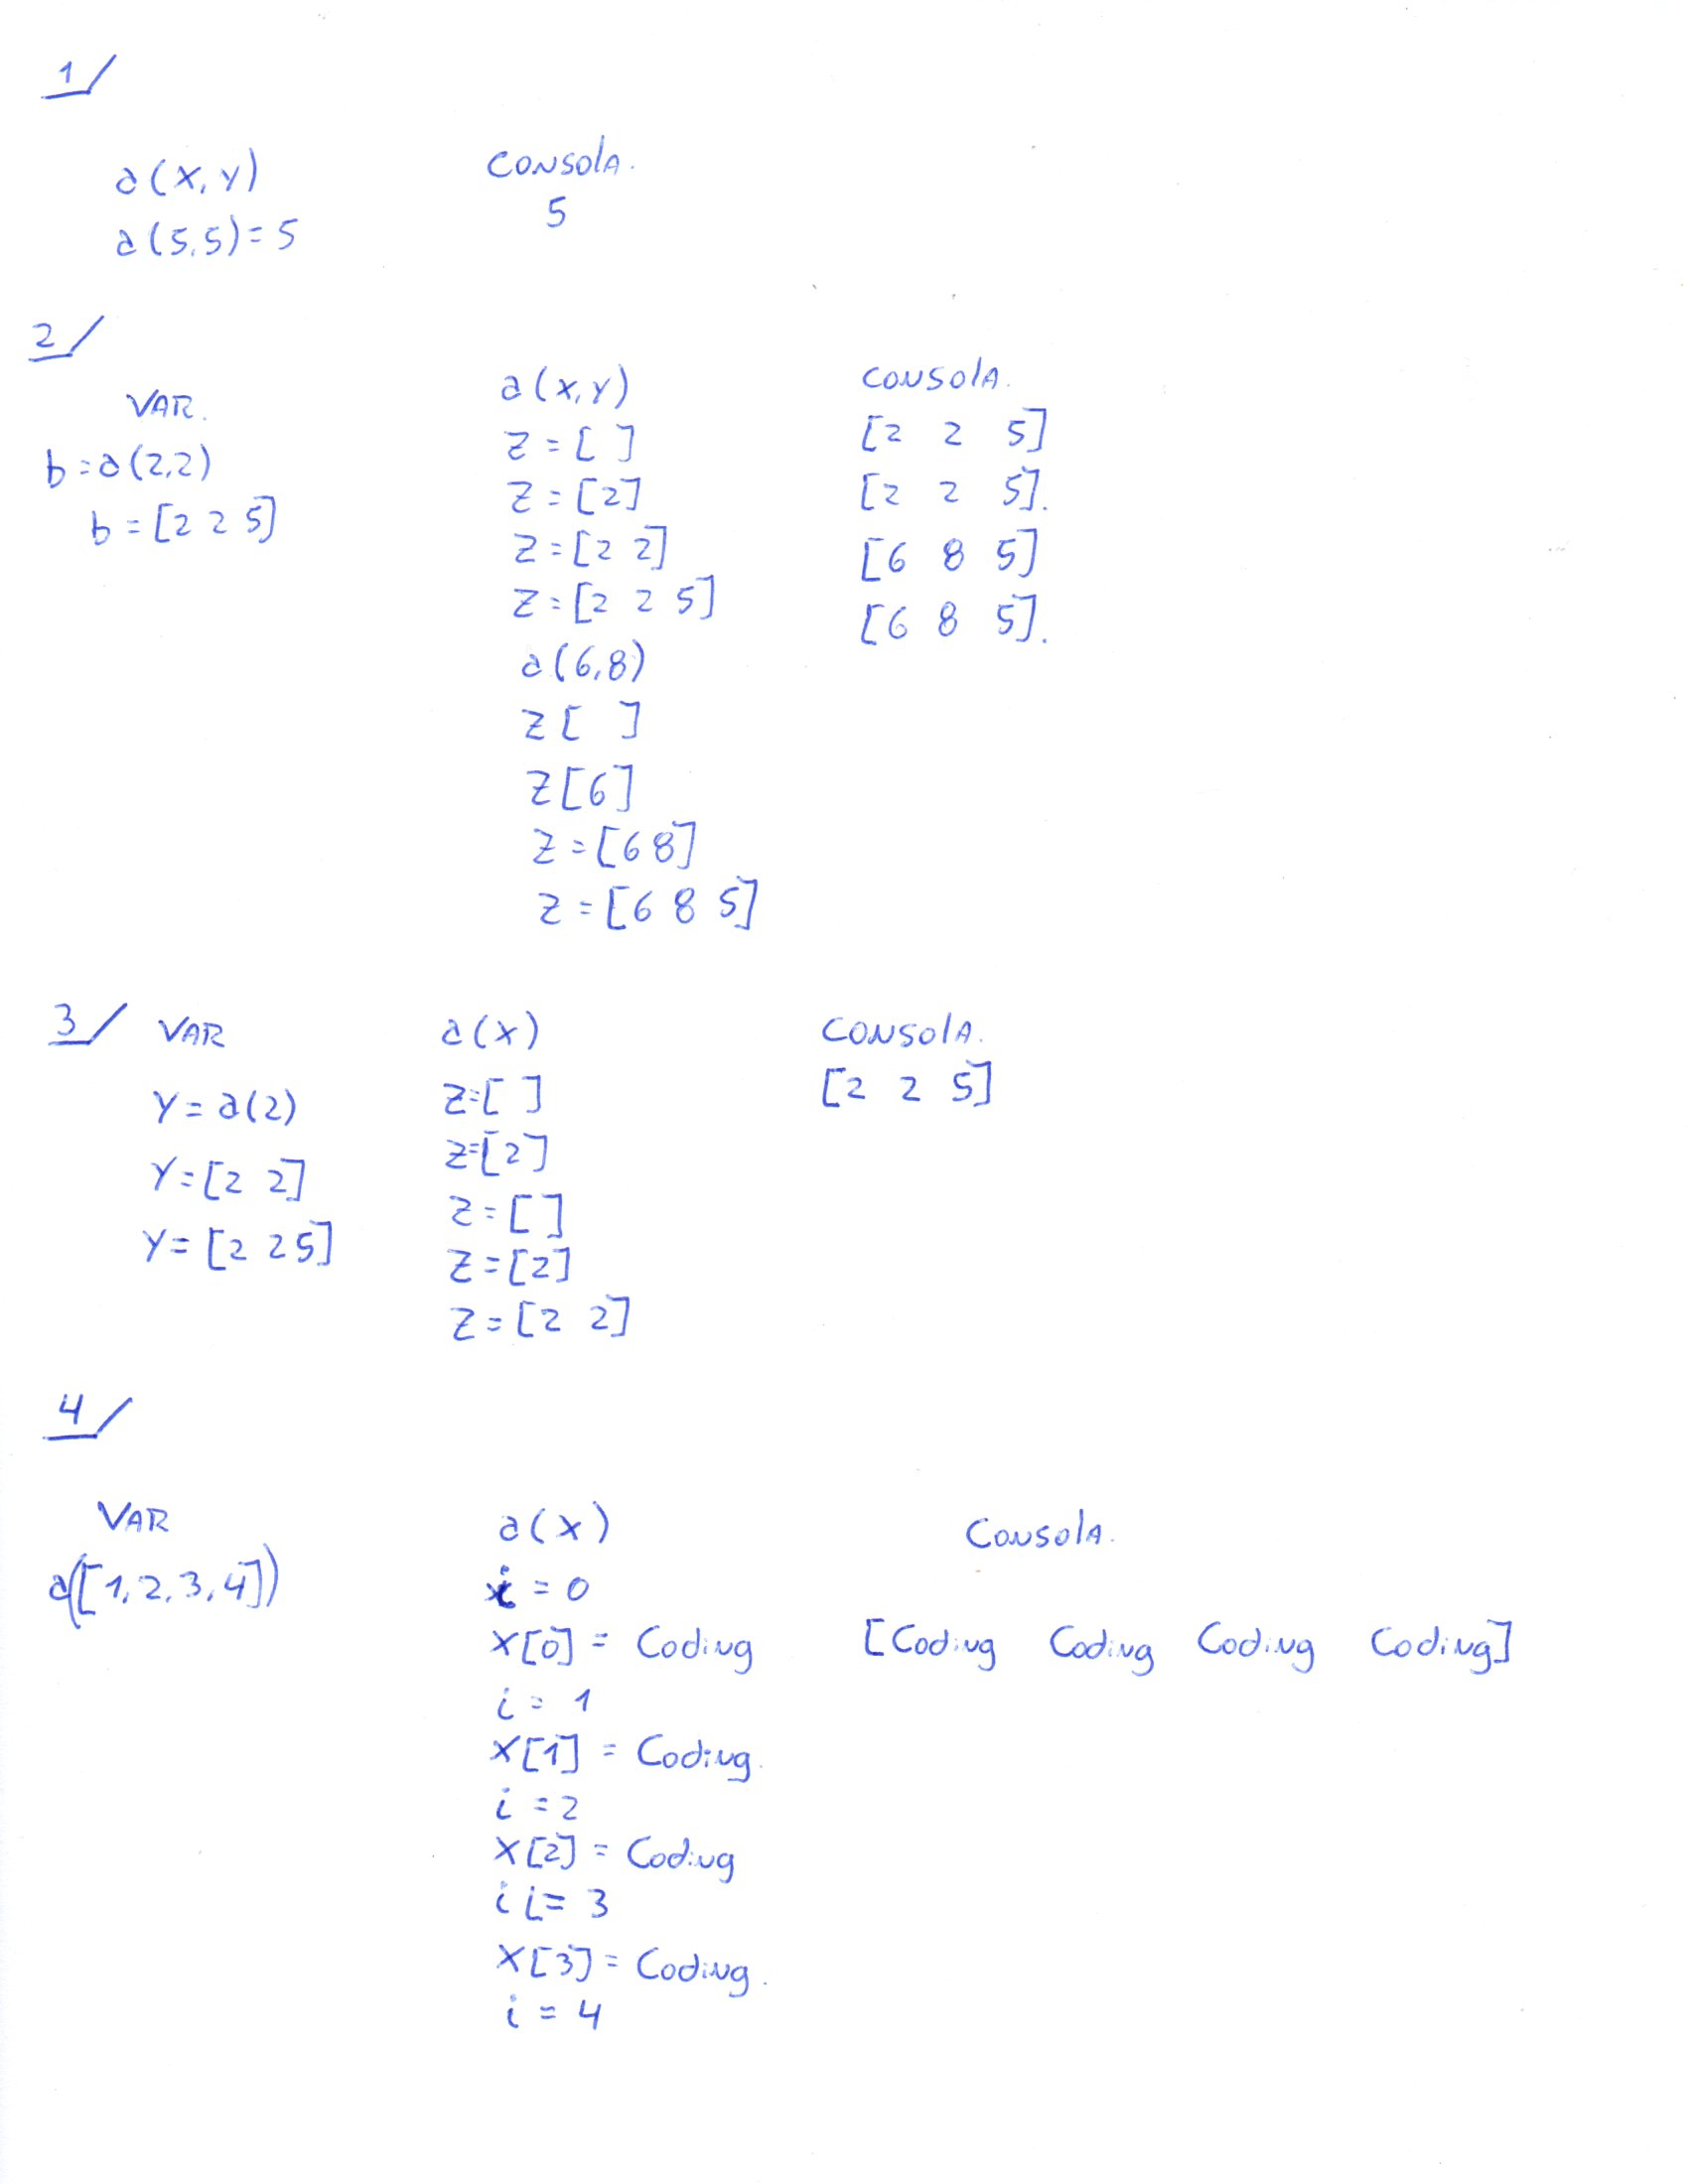 1/
a(x,y)
a(5,5)=5
Consola.
5
2/
VAR.
b=a(2,2)
b=[2 2 5]
a(x,y)
z=[ ]
z=[2]
z=[2 2]
z=[2 2 5]
a(6,8)
z[ ]
z[6]
z=[6 8]
z=[6 8 5]
Consola.
[2 2 5]
[2 2 5].
[6 8 5]
[6 8 5].
3/
VAR
Y=a(2)
Y=[2 2]
Y=[2 2 5]
a(x)
z=[ ]
z=[2]
z=[ ]
z=[2]
z=[2 2]
Consola.
[2 2 5]
4/
VAR
a([1,2,3,4])
a(x)
i=0
x[0] = Coding
i=1
x[1] = Coding.
i=2
x[2] = Coding
i i=3
x[3] = Coding.
i=4
Consola.
[Coding Coding Coding Coding]